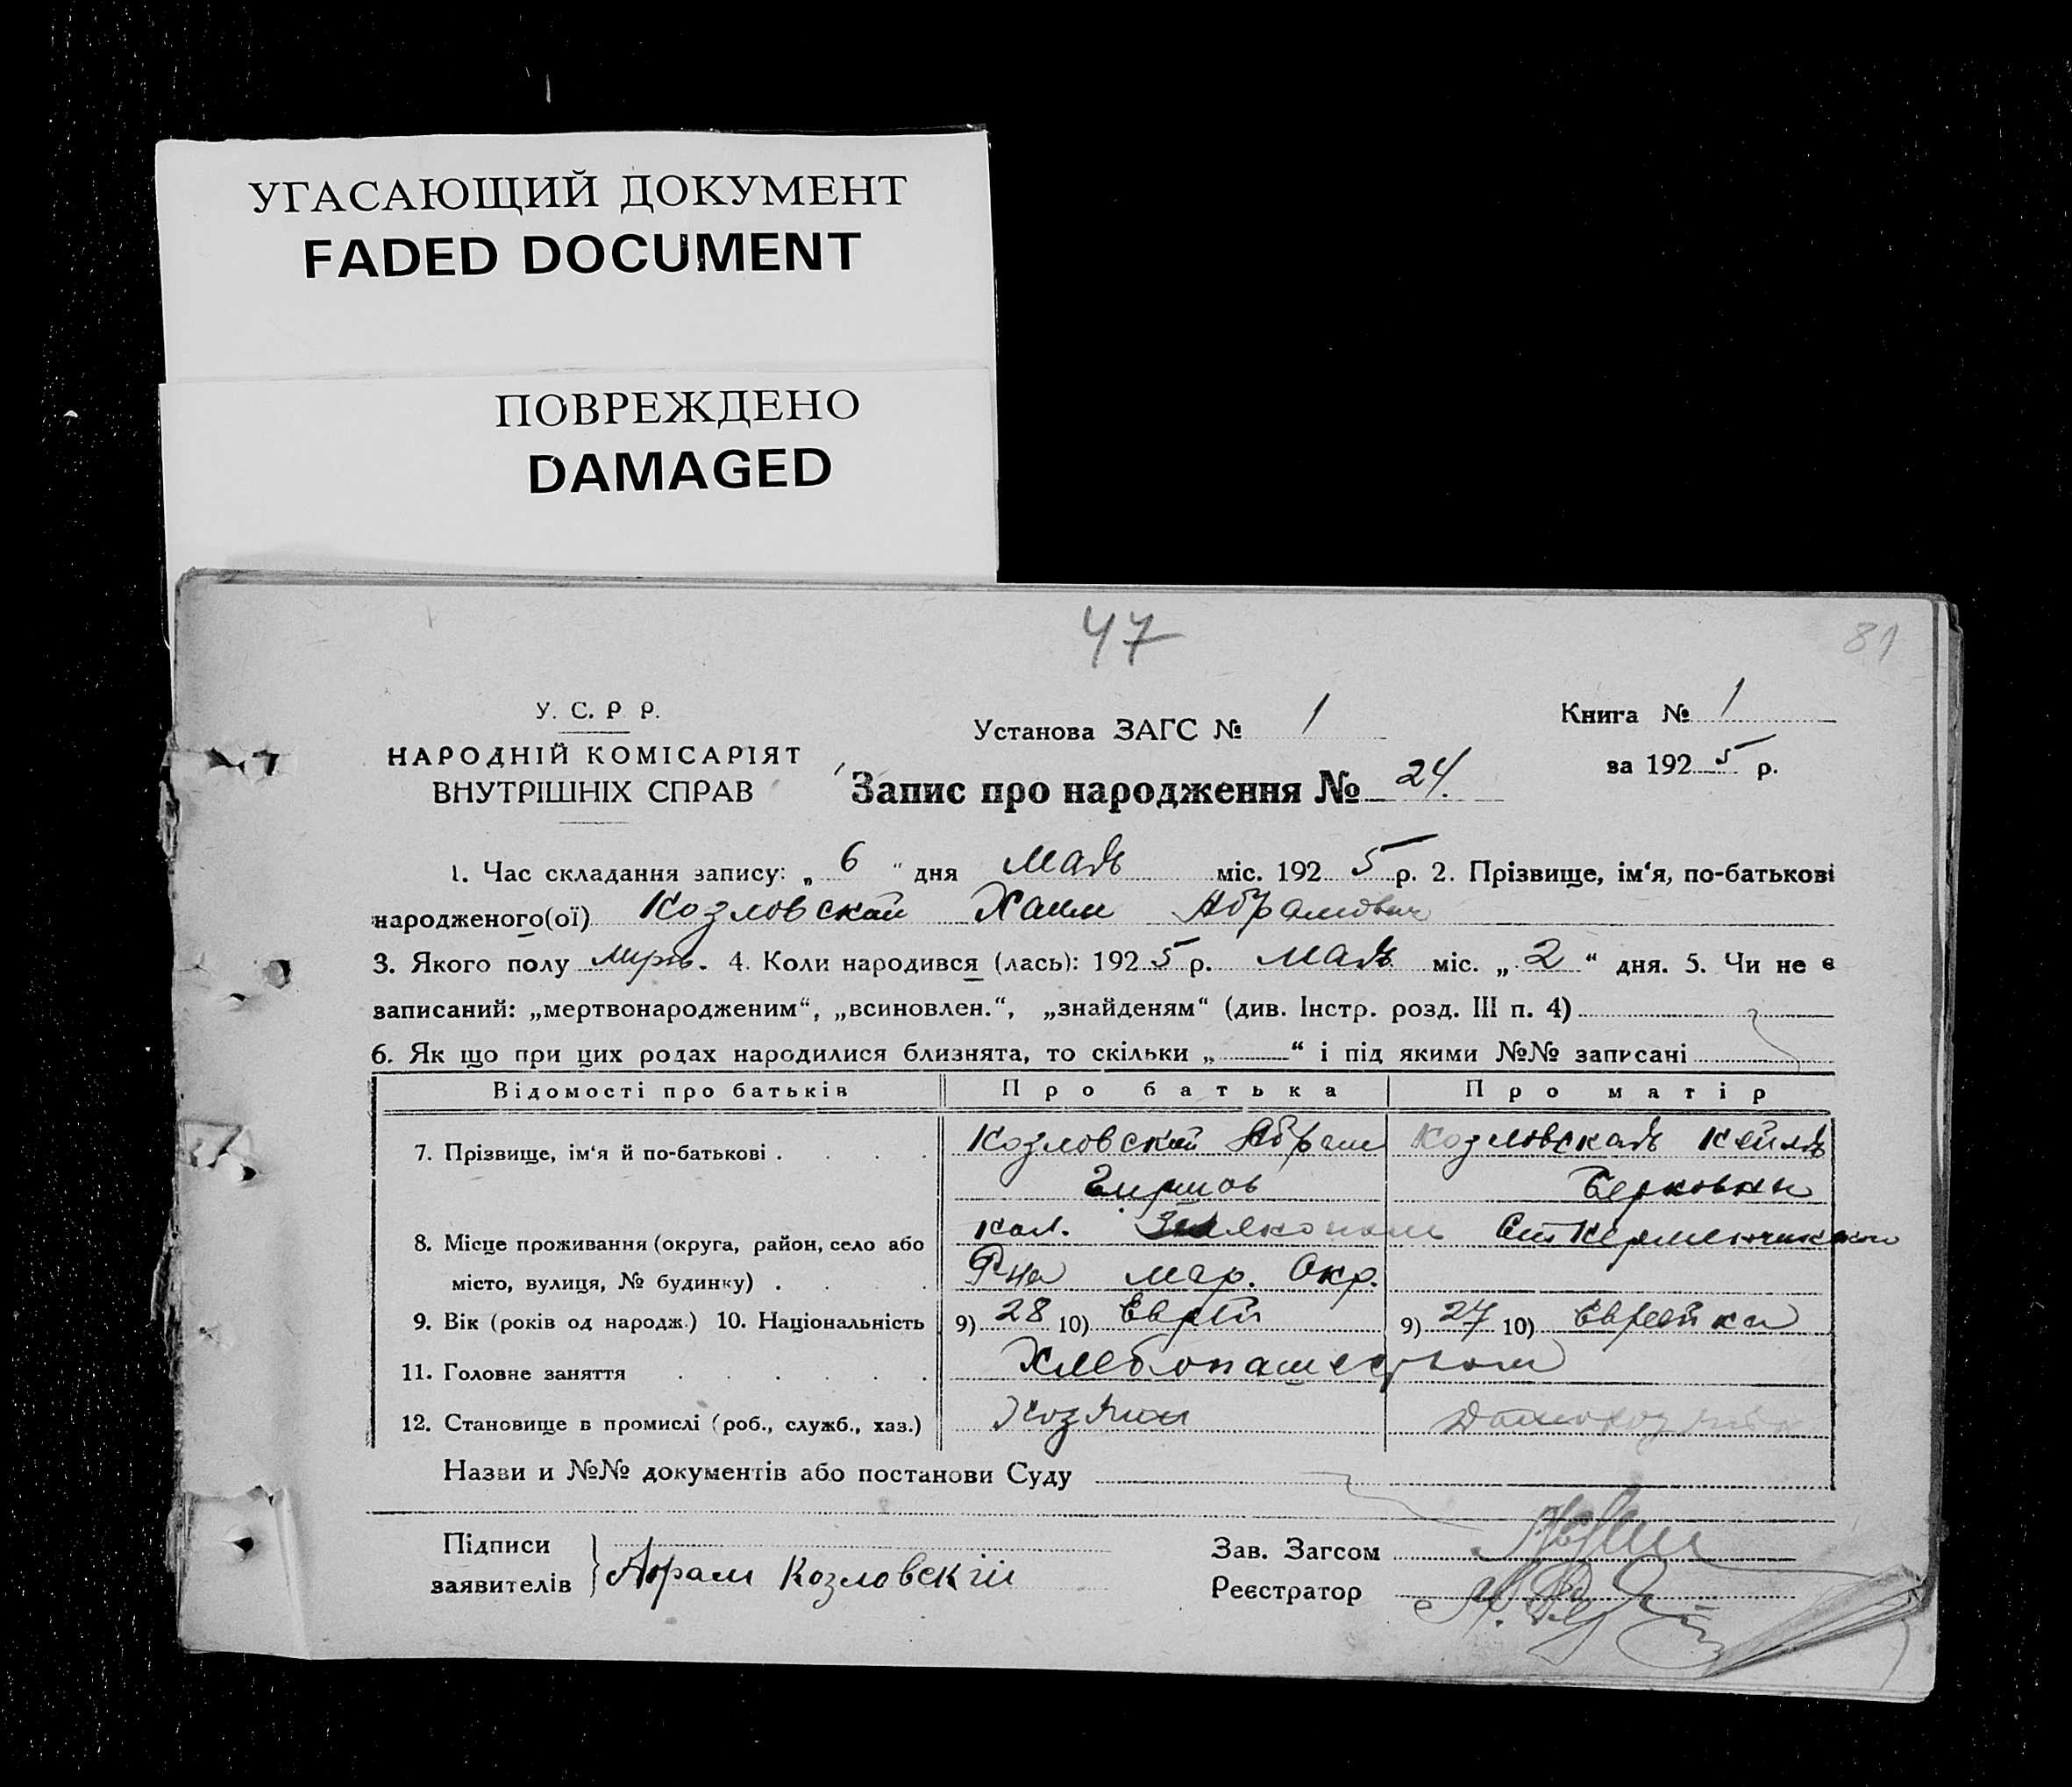 УГАСАЮЩИЙ ДОКУМЕНТ
FADED DOCUMENT
ПОВРЕЖДЕНО
DAMAGED
47
81
У. С. Р Р.
НАРОДНІЙ КОМІСАРІЯТ
ВНУТРІШНІХ СПРАВ
Установа ЗАГС № 1
Книга № 1
за 1925 р.
Запис про народження № 24.
1. Час складання запису: „ 6 “ дня Мая міс. 1925 р. 2. Прізвище, ім‘я, по-батькові
народженого(ої) Козловский Хаим Абрамович
3. Якого полу 4. Коли народився (лась): 1925 р. Мая міс. „ 2 “ дня. 5. Чи не є
записаний: „мертвонародженим“, „всиновлен.“, „знайденям“ (див. Інстр. розд. III п. 4)
6. Як що при цих родах народилися близнята, то скільки „ “ і під якими №№ записані
Відомості про батьків Про батька Про матір
7. Прізвище, ім‘я й по-батькові . Козловский Абрам Козловская Кейля
Гиршов Берковна
8. Місце проживання (округа, район, село або кол. Ст Керменчикскои
місто, вулиця, № будинку) . Р-на Мар. Окр.
9. Вік (років од народж.) 10. Національність 9) 28 10) Еврей 9) 27 10) Еврейка
11. Головне заняття Хлебопашеством
12. Становище в промислі (роб., служб., хаз.) Хозяин Домохозяйка
Назви и №№ документів або постанови Суду
Підписи
заявителів } Абрам Козловскій
Зав. Загсом
Реєстратор